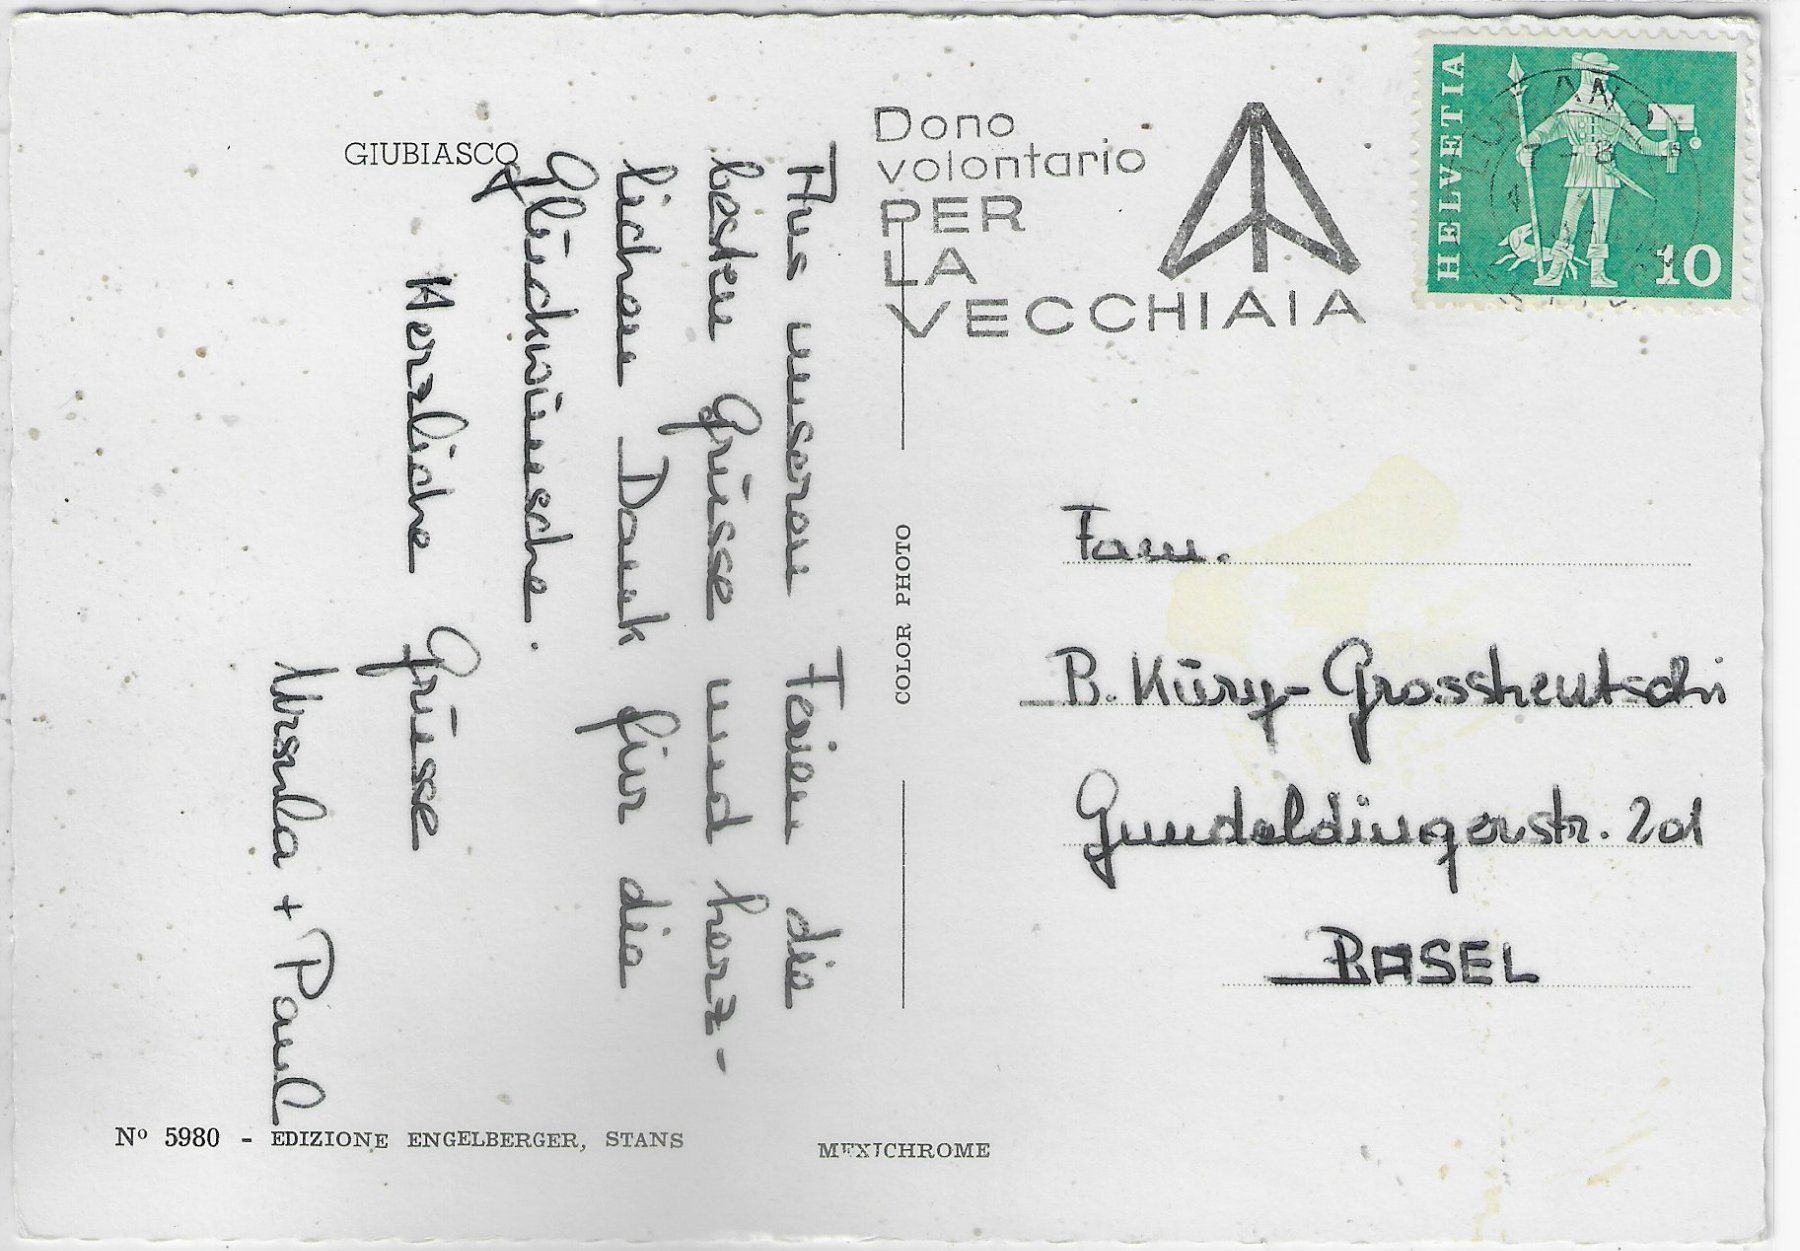 GIUBIASCO
Aus unseren Ferien die
besten Grüsse und herz-
lichen Dank für die
Glückwünsche.
Herzliche Grüsse
Ursula + Paul
Nº 5980 - EDIZIONE ENGELBERGER, STANS
MEXICHROME
COLOR PHOTO
Dono
volontario
PER
LA
VECCHIAIA
HELVETIA
10
LUGANO
Fam.
B. Küry-Grossheutschi
Gundeldingerstr. 201
BASEL